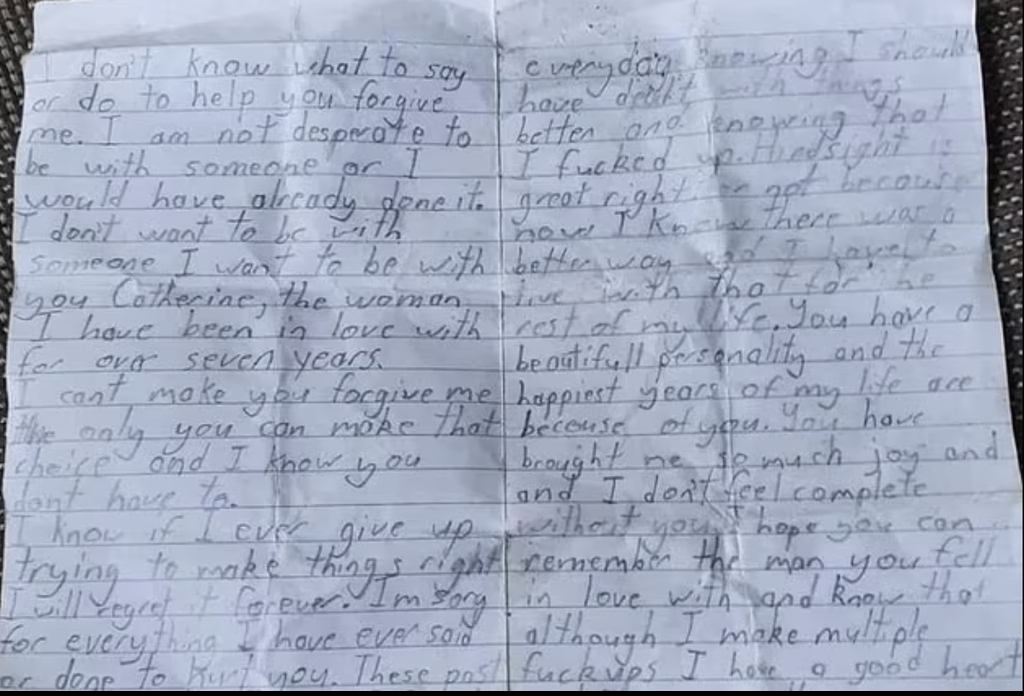 I don't know what to say
or do to help you forgive
me. I am not desperate to
be with someone or I
would have already done it.
I don't want to be with
someone I want to be with
you Catherine, the woman
I have been in love with
for over seven years.
I cant make you forgive me
the only you can make that
choice and I know you
dont have to.
I know if I ever give up
trying to make things right
I will regret it forever. I'm sory
for everything I have ever said
or done to hurt you. These past
everyday knowing I should
have dealt with things
better and knowing that
I fucked up. Hindsight is
great right or not because
now I know there was a
better way and I have to
live with that for he
rest of my life. You have a
beautifull personality and the
happiest years of my life are
because of you. You have
brought me so much joy and
and I don't feel complete
without you I hope you can
remember the man you fell
in love with and know that
although I make multiple
fuck ups I have a good heart